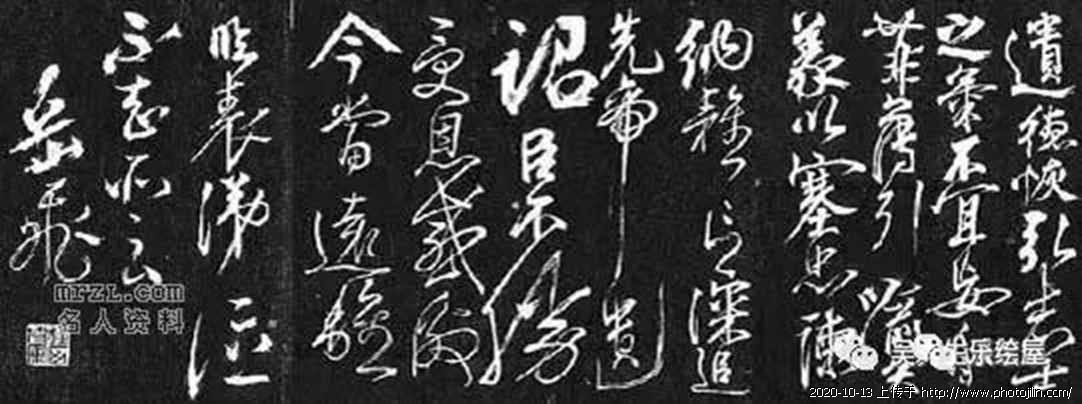 遺德恢弘志士
之氣不宜妄自
菲薄引喻失
義以塞忠諫
納雅言深追
先帝遺
詔臣不勝
受恩感激
今當遠離
臨表涕泣
不知所云
岳飛
mrzl.com
名人资料
生乐绘屋
2020-10-13 上传于 http://www.photojilin.com/